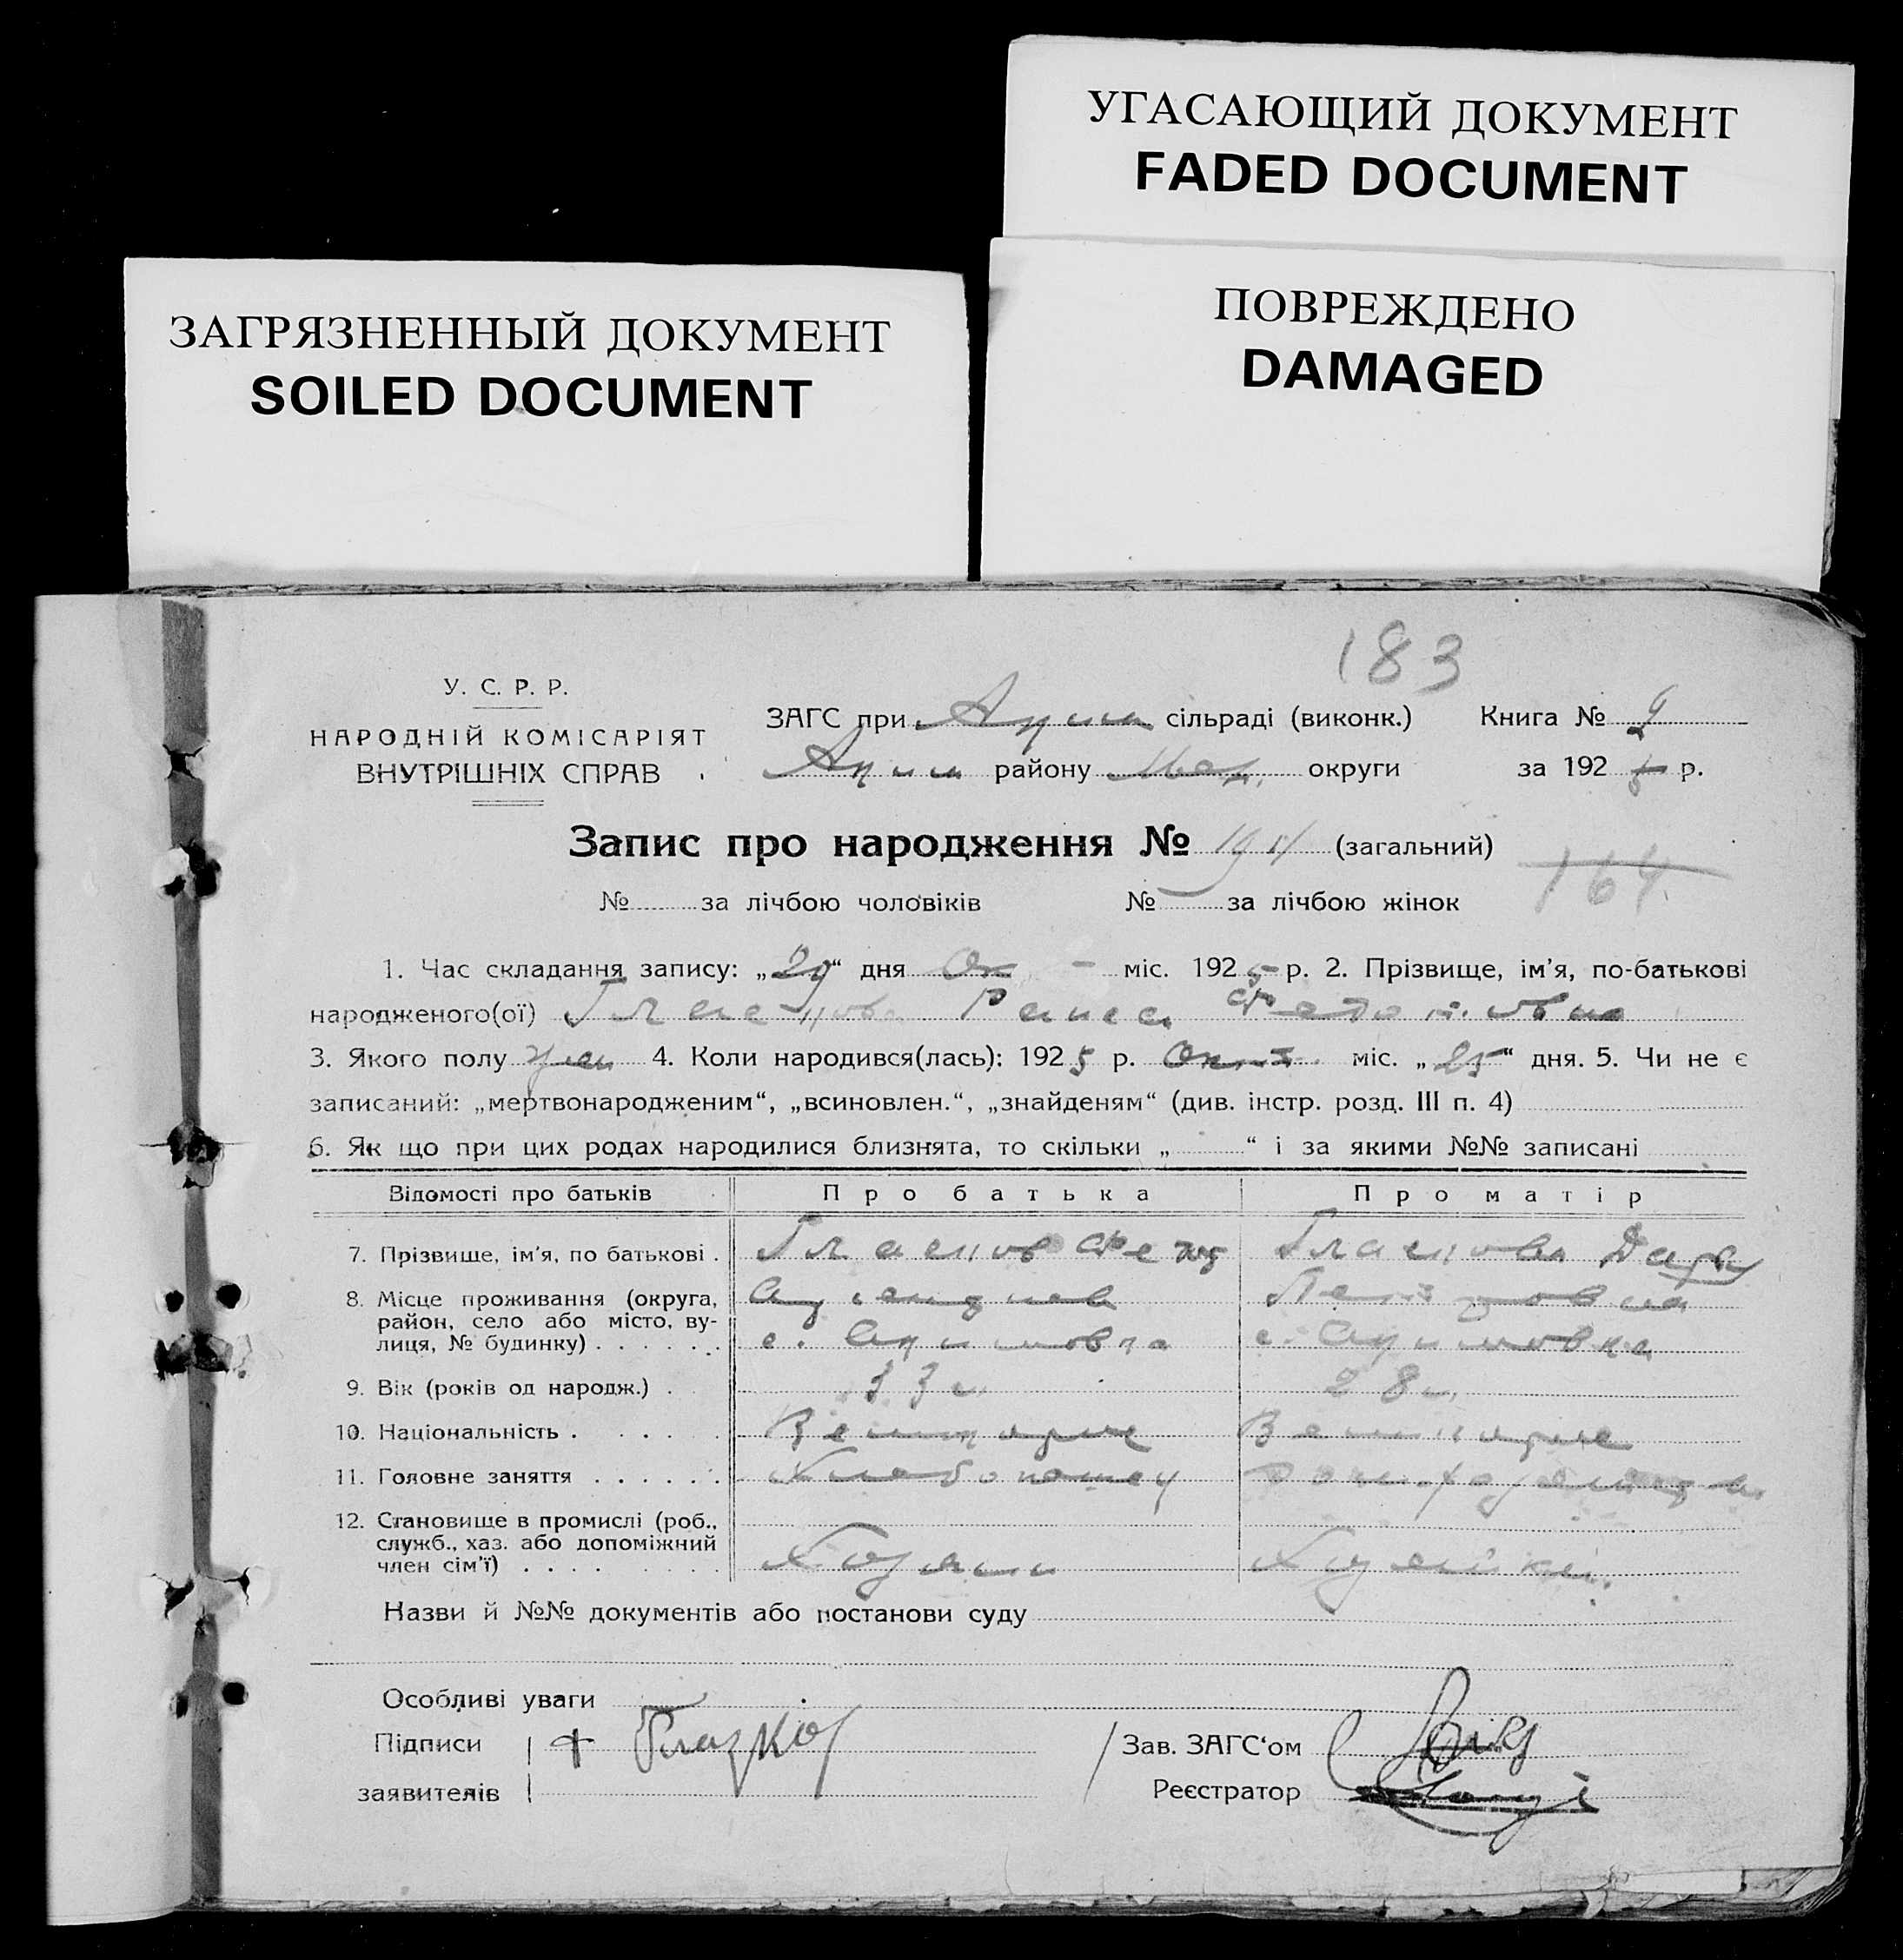 УГАСАЮЩИЙ ДОКУМЕНТ
FADED DOCUMENT
ЗАГРЯЗНЕННЫЙ ДОКУМЕНТ
SOILED DOCUMENT
ПОВРЕЖДЕНО
DAMAGED
183
У. С. Р. Р.
НАРОДНІЙ КОМІСАРІЯТ
ВНУТРІШНІХ СПРАВ
ЗАГС при Аким сільраді (виконк.) Книга № 2
Аким району Мел. округи за 1925 р.
Запис про народження № (загальний)
164
№ за лічбою чоловіків № за лічбою жінок
1. Час складання запису: „29“ дня Ок міс. 1925 р. 2. Прізвище, ім'я, по-батькові
народженого(ої) Раиса
3. Якого полу жен 4. Коли народився(лась): 1925 р. Окт. міс. „25“ дня. 5. Чи не є
записаний: „мертвонародженим“, „всиновлен.“, „знайденям“ (див. інстр. розд. III п. 4)
6. Як що при цих родах народилися близнята, то скільки „ “ і за якими №№ записані
Відомості про батьків Про батька Про матір
7. Прізвище, ім'я, по батькові .
8. Місце проживання (округа,
район, село або місто, ву-
лиця, № будинку) . . . . . . с. Акимовка с. Акимовка
9. Вік (років од народж.) . 33 28
10. Національність . . . . .
11. Головне заняття . . . . . . Хлебопашец
12. Становище в промислі (роб.,
служб., хаз. або допоміжний
член сім'ї) . . . . . . . . Хозяин Хозяйка
Назви й №№ документів або постанови суду
Особливі уваги
Підписи +
заявителів
Зав. ЗАГС'ом
Реєстратор